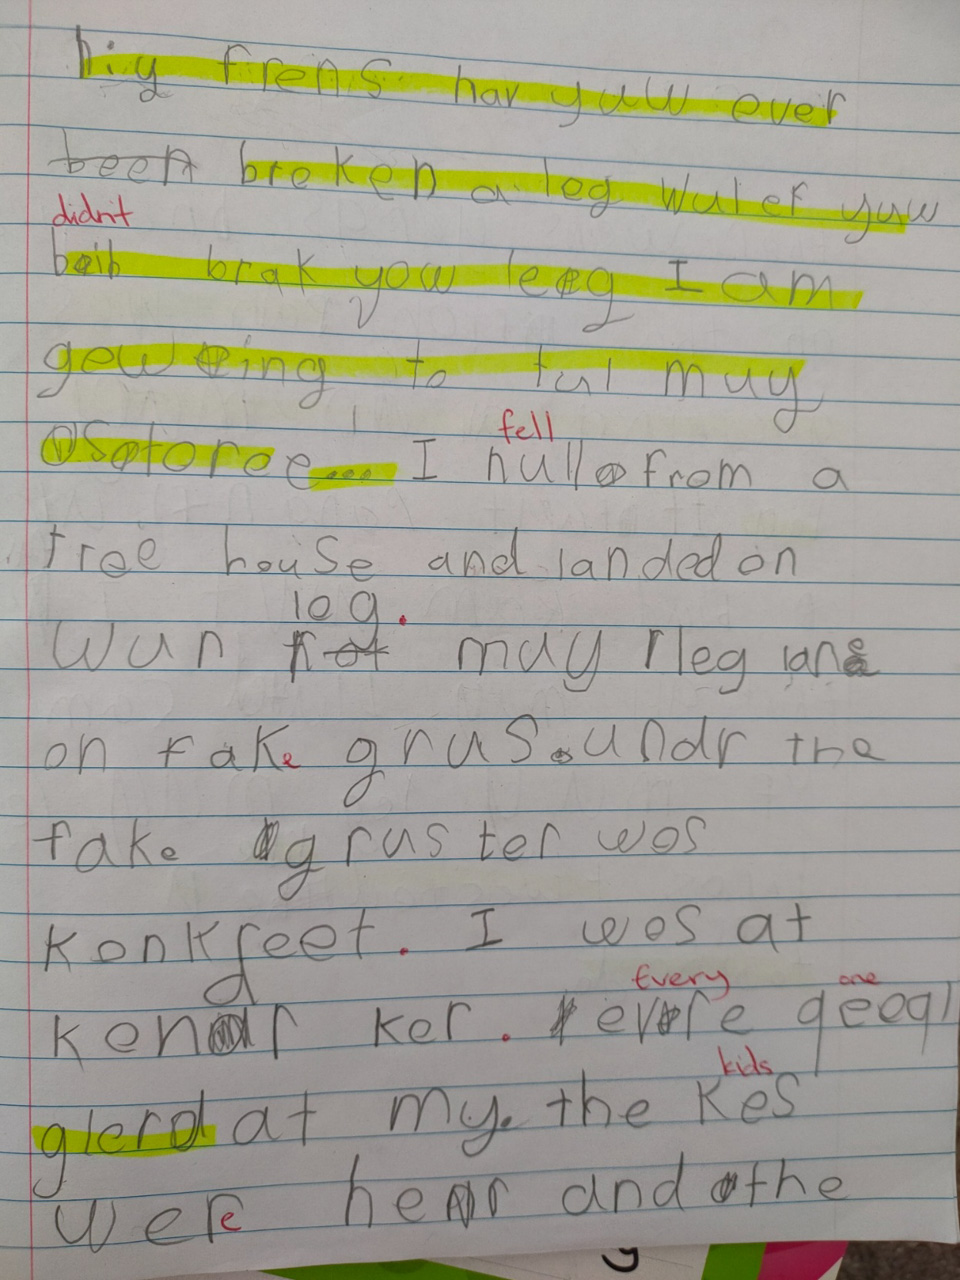 hiy frens hav yuw ever
been breken a leg Wul ef yuw
didn't
brak yow leeg I am
gewing to tul muy
Sotoree... I
fell
null from a
tree house and landed on
leg.
Wun not muy leg lane
on fake grus. undr the
fake grus ter wos
konkreet. I wos at
kendr ker.
Every
one
evere
kids
glerd at my. the Kes
were henr and the